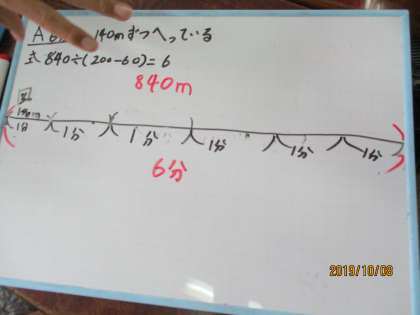 A 140mずつへっている
式 840÷(200-60)=6
840m
図
140m
1分 1分 1分 1分 1分 1分
6分
2019/10/08